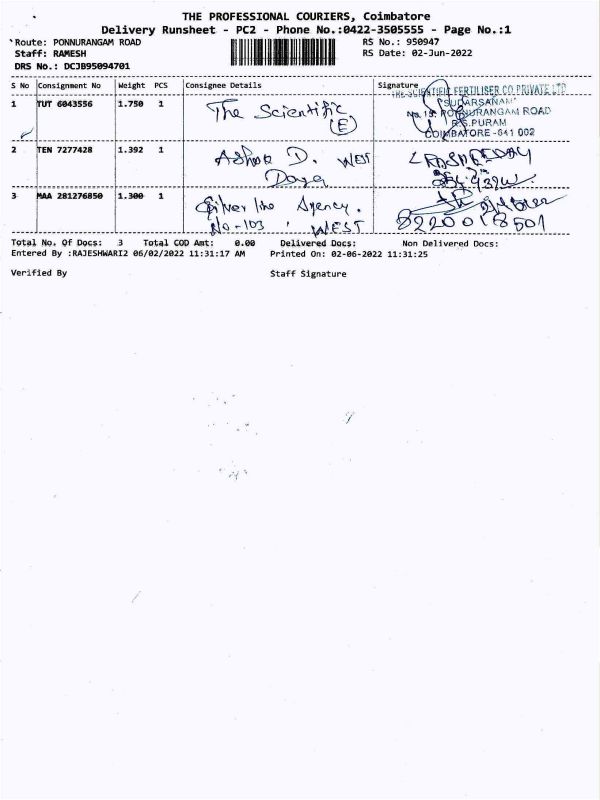 THE PROFESSIONAL COURIERS, Coimbatore
Delivery Runsheet - PC2 - Phone No.:0422-3505555 - Page No.:1
Route: PONNURANGAM ROAD
RS No.: 950947
Staff: RAMESH
RS Date: 02-Jun-2022
DRS No.: DCJB95094701
S No Consignment No Weight PCS Consignee Details Signature
THE SCIENTIFIC FERTILISER CO PRIVATE LTD
1 TUT 6043556 1.750 1 The Scientific "SUDARSANAM"
No. 15, PONNURANGAM ROAD
(E) R.S.PURAM
COIMBATORE -641 002
2 TEN 7277428 1.392 1 Ashok D. WEST
Daga
3 MAA 281276850 1.300 1 Silver line Agency.
No-103, WEST 8220018501
Total No. Of Docs: 3 Total COD Amt: 0.00 Delivered Docs: Non Delivered Docs:
Entered By :RAJESHWARI2 06/02/2022 11:31:17 AM Printed On: 02-06-2022 11:31:25
Verified By Staff Signature